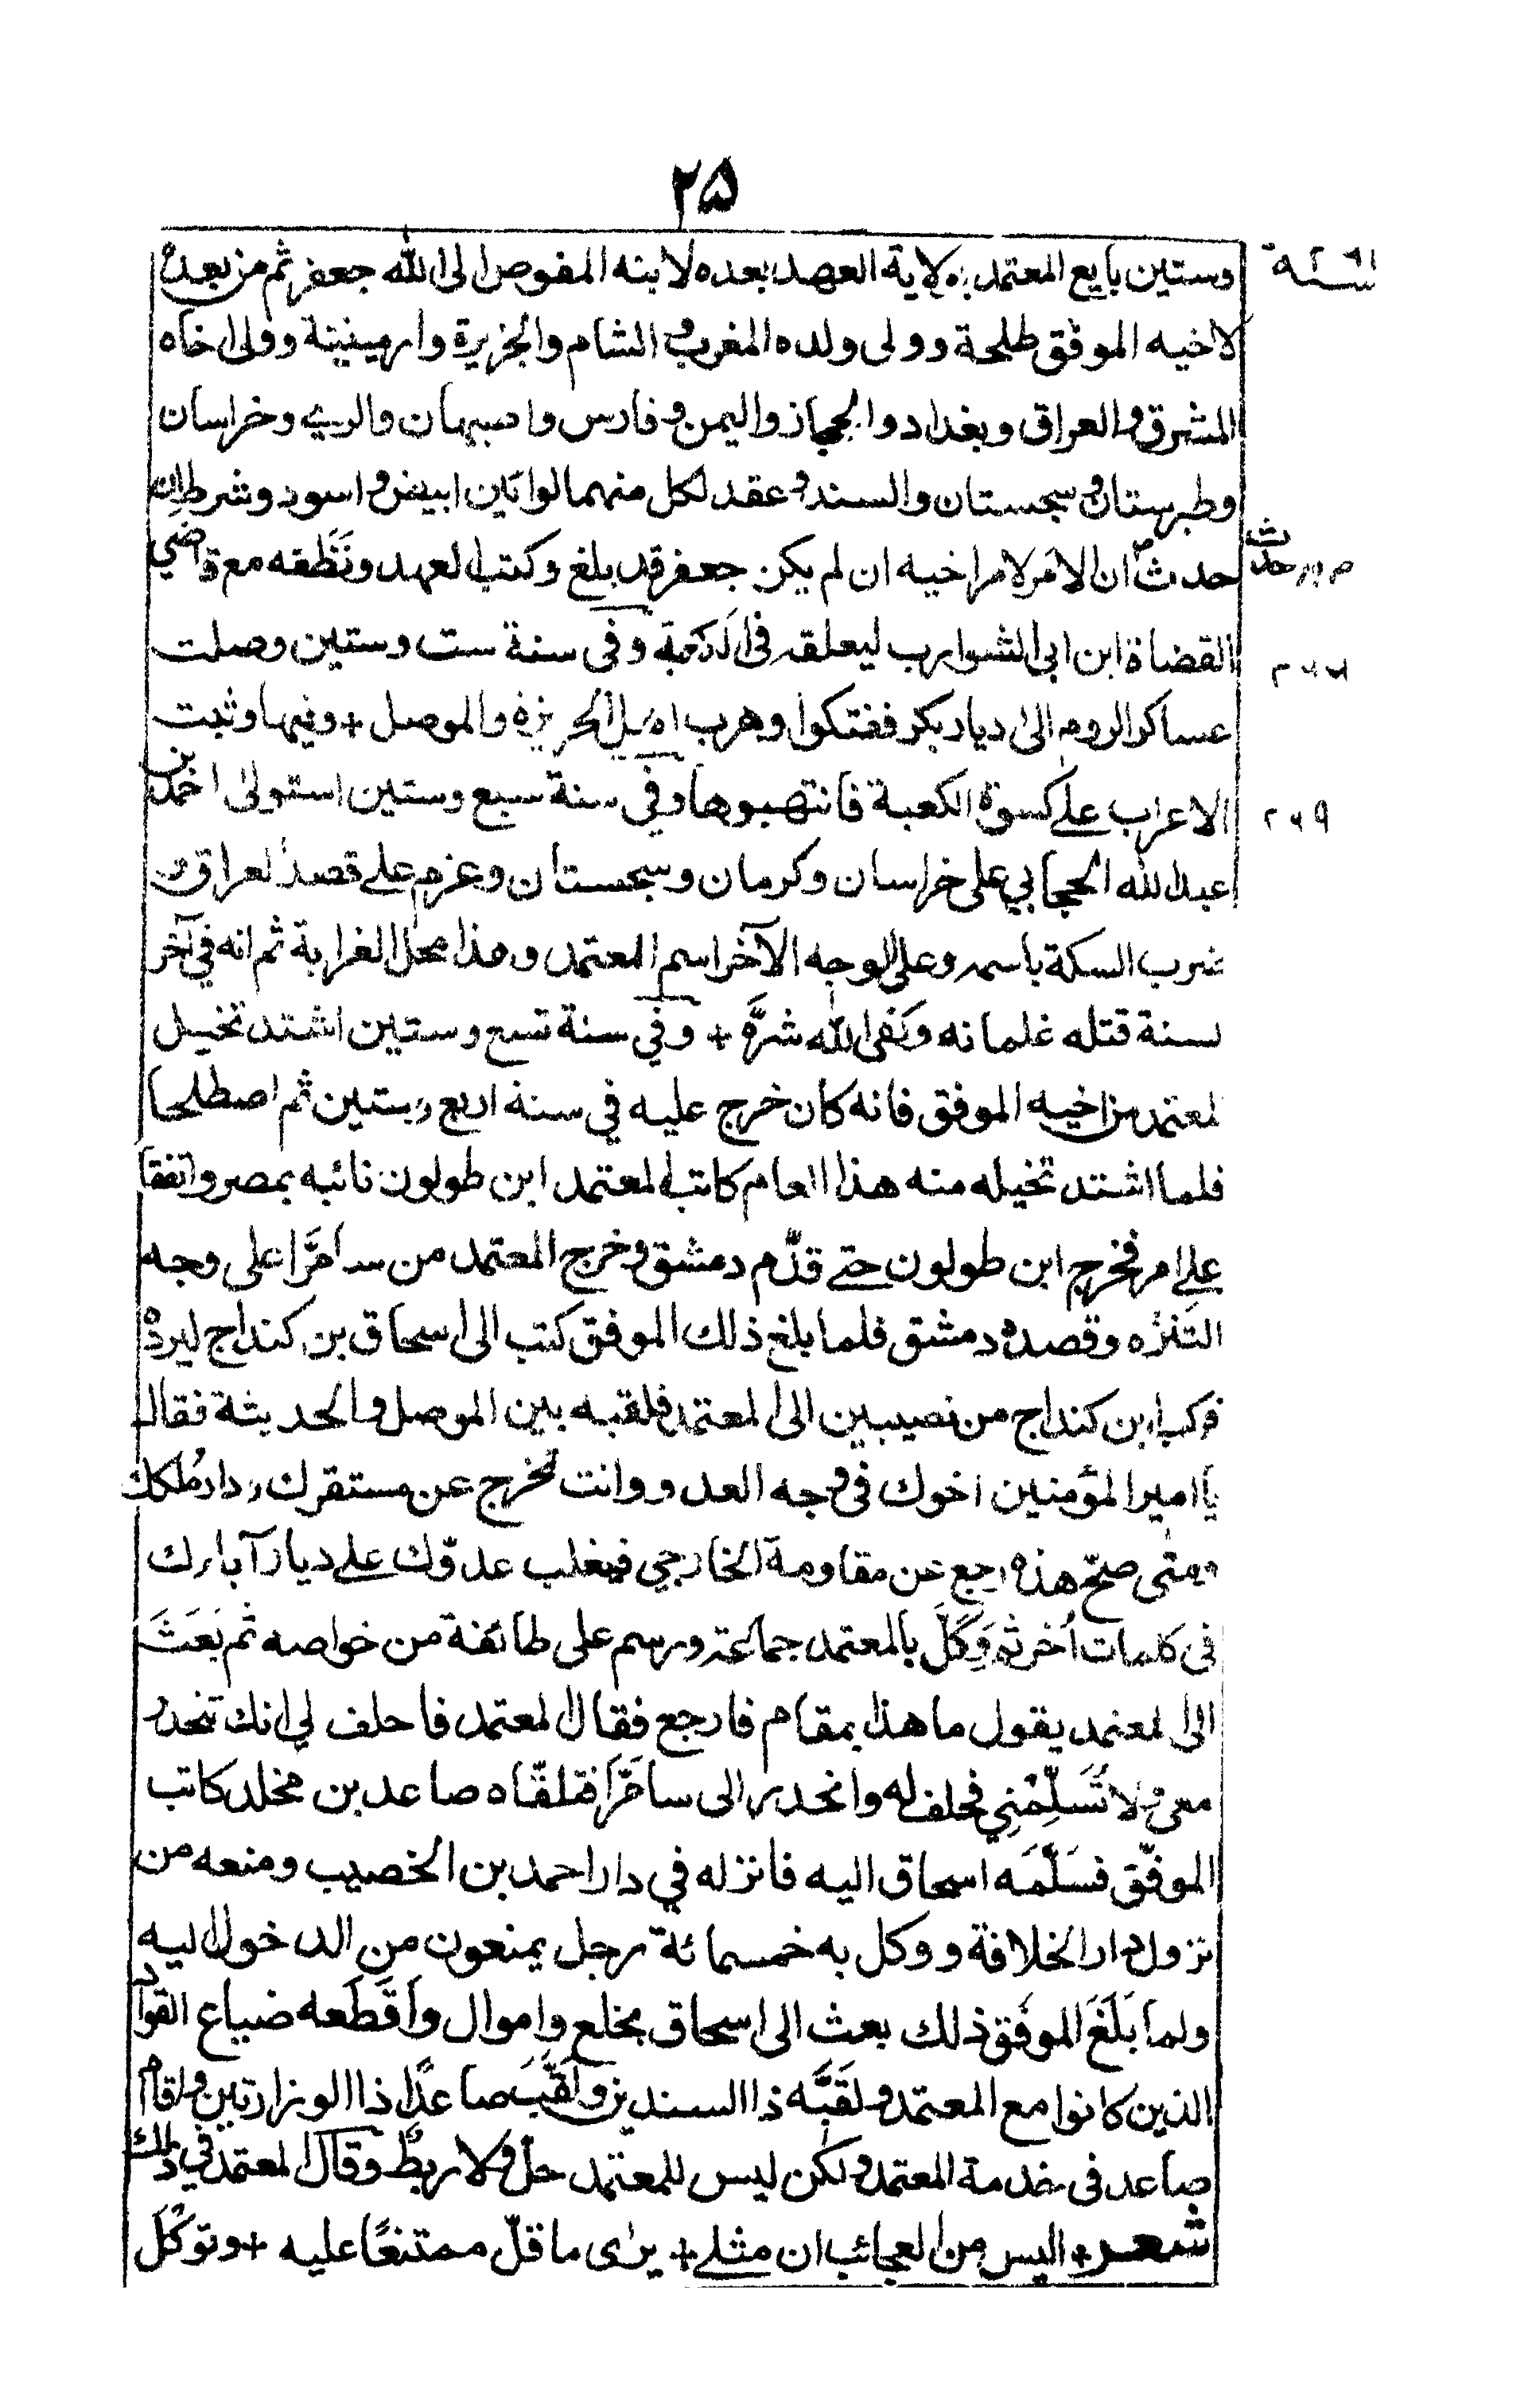 ٢٥
وستين بايع المعتمد بولاية العهد بعده لابنه المفوض الى الله جعفر ثم من بعده
سنة ٢٦١
لاخيه الموفق طلحة وولى ولده المغرب و الشام والجزيرة وارمينية وولى اخاه
المشرق والعراق وبغداد والحجاز واليمن و فارس واصبهان والري وخراسان
وطبرستان و سجستان والسند و عقد لكل منهما لوائين ابيض و اسود وشرط ان
حدث ان الامر لامر اخيه ان لم يكن جعفر قد بلغ وكتب العهد ونَفَّظه مع قاضي
حدث
القضاة ابن ابى الشوارب ليعلقه فى الكعبة وفى سنة ست وستين وصلت
٢٦٦
عساكر الروم الى ديار بكر ففتكوا وهرب اهل الجزيرة والموصل + وفيها وثبت
الاعراب على كسوة الكعبة فانتهبوها وفي سنة سبع وستين استولى احمد بن
٢٦٩
عبد الله الحجابي على خراسان وكرمان وسجستان وعزم على قصد العراق و
ضرب السكة باسمه وعلى الوجه الآخر اسم المعتمد وهذا محل الغرابة ثم انه في آخر
سنة قتله غلمانه وكفى الله شرَّه + وفي سنة تسع وستين اشتد تخيل
لمعتمد من اخيه الموفق فانه كان خرج عليه في سنة اربع وستين ثم اصطلحا
فلما اشتد تخيله منه هذا العام كاتب المعتمد ابن طولون نائبه بمصر واتفقا
على امر فخرج ابن طولون حتى قدّم دمشق وخرج المعتمد من سامرَّا على وجه
التنزُه وقصده دمشق فلما بلغ ذلك الموفق كتب الى اسحاق بن كنداج ليرده
فركب ابن كنداج من نصيبين الى المعتمد فلقيه بين الموصل والحديثة فقال
يا امير المؤمنين اخوك فى وجه العدو وانت تخرج عن مستقرك ودار مُلكك
ومتى صحّ هذا رجع عن مقاومة الخارجي فيغلب عدوّك على ديار آبائك
فى كلمات اُخر ثم وَكَّلَ بالمعتمد جماعة ورسم على طائفة من خواصه ثم بَعَثَ
الى المعتمد يقول ما هذا بمقام فارجع فقال المعتمد فاحلف لي انك تنحدر
معي ولا تُسَلِّمْنِي فحلف له وانحدر الى سامَرَّا فتلقّاه صاعد بن مخلد كاتب
الموفّق فسَلَّمَه اسحاق اليه فانزله في دار احمد بن الخصيب ومنعه من
نزول دار الخلافة ووكل به خمسمائة رجل يمنعون من الدخول اليه
ولما بَلَغَ الموفق ذلك بعث الى اسحاق بخلع واموال وَاَقَطَعه ضياع القواد
الذين كانوا مع المعتمد و لقَبَّه ذا السندين ولَقَّبَ صاعدًا ذا الوزارتين واقام
صاعد فى خدمة المعتمد و لكن ليس للمعتمد حلّ ولا ربطٌ وقال المعتمد في ذلك
شعر + اليس من العجائب ان مثلى + يرى ما قلّ ممتنعًا عليه + وتوكَلَ